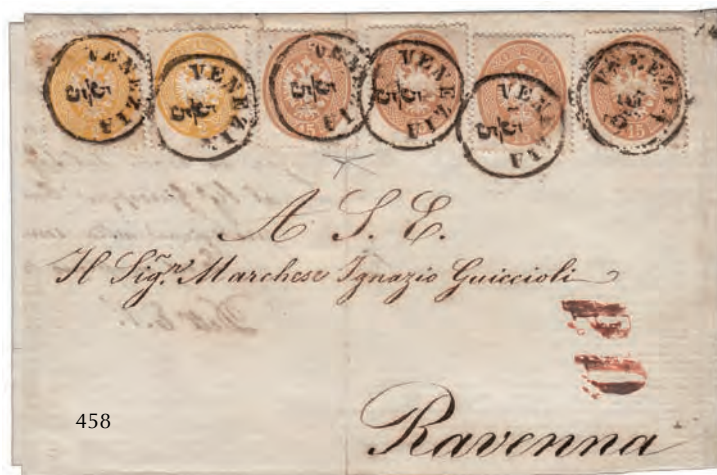 VENEZIA
5/5
VENEZIA
5/5
VENEZIA
5/5
15
VENEZIA
5/5
VENEZIA
5/5
VENEZIA
5/5
15
A S. E.
Il Sigr. Marchese Ignazio Guiccioli
PD
458
Ravenna